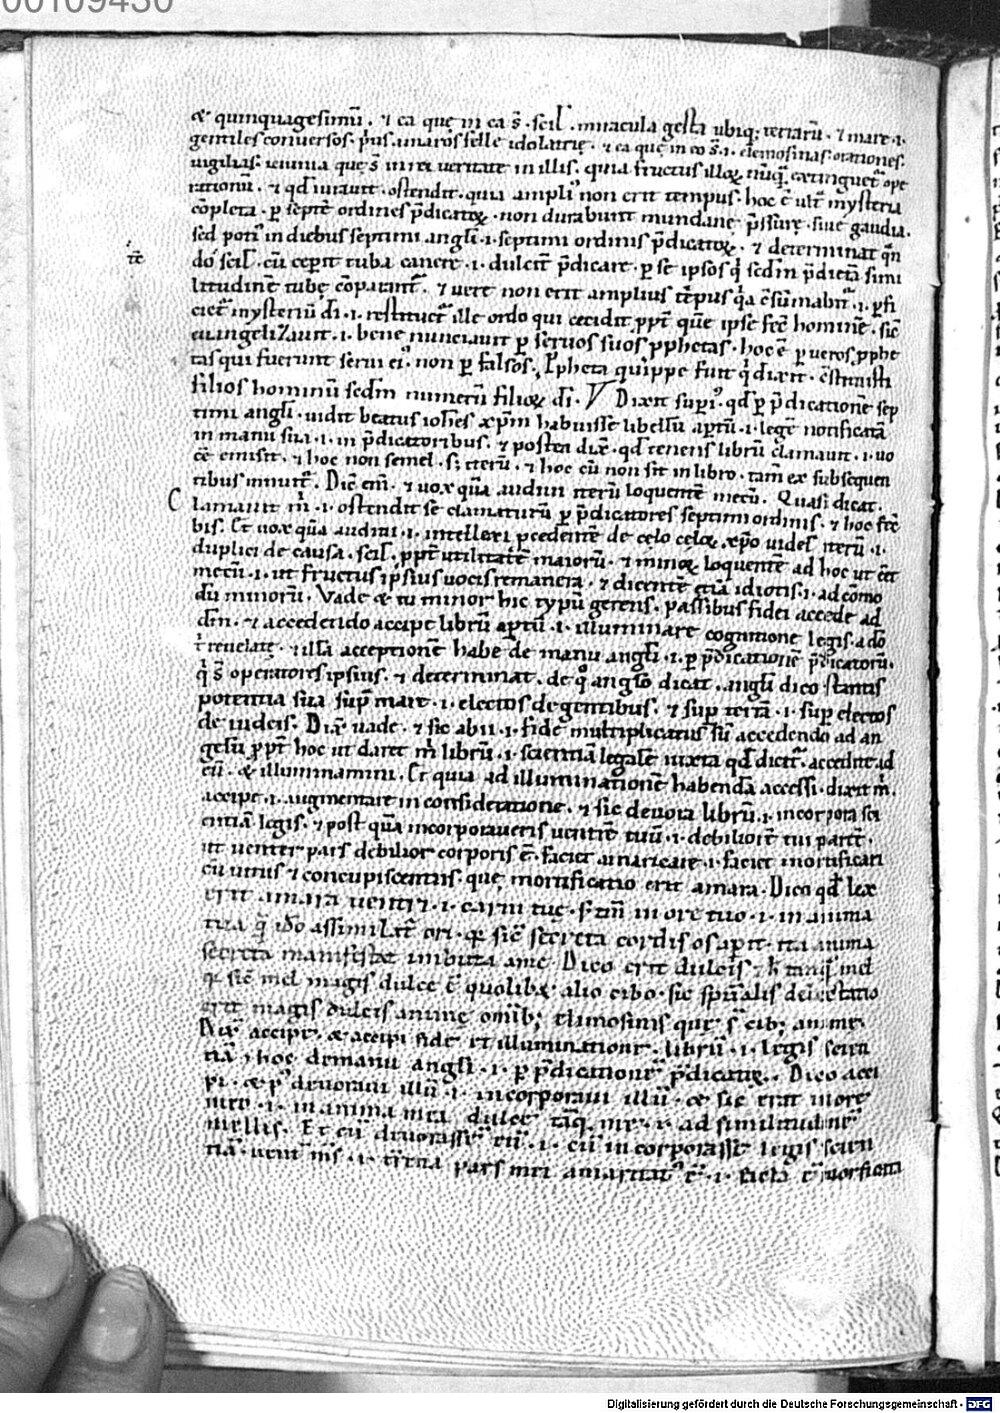 00109430
& quinquagesimū . ⁊ ea que in ea s̄ . scił . miracula gesta ubiq; terrarū . ⁊ mare .i.
gentiles conuersos . p̄us amaros felle idolatrię . ⁊ ea quę in eo s̄ .i. elemosinas: orationes:
uigilias: ieiunia quę s̄ in rei ueritate in illis . quia fructus illoꝝ nūq̄ extinguet᷑ ope
rationū . ⁊ qd̄ iurauit . ostendit . quia ampli᷒ non erit tempus . hoc ē ult᷑ mysteria
cōpleta . ꝑ septē ordines p̄dicatoꝝ . non durabunt mundanę p̄ssurę . siue gaudia .
sed poti᷒ in diebus septimi angłi .i. septimi ordinis p̄dicatoꝝ . ⁊ determinat qn̄
do᷑ scił . cū ceperit tuba canere .i. dulcit᷑ p̄dicare . ꝑ se ipsos q̇ scdm̄ p̄dictā simi
litudinē tubę cōparant᷑ . ⁊ uere non erit amplius tēpus q̇a c̄sūmabit᷑ .i. ꝑfi
ciet᷑ mysteriū dī .i. restituet᷑ ille ordo qui cecidit ꝓpt᷑ quē ipse fec̄ hominē . sic̄
euangelizauit .i. bene nunciauit ꝑ seruos suos ꝓphetas . hoc ē ꝑ ueros ꝓphe
tas qui fuerunt serui ei᷒ non ꝑ falsos . Ꝓpheta quippe fuit q̇ dixit . c̄stituisti
filios hominū scdm̄ numerū filioꝝ dī . V Dixit supi᷒ . qd̄ ꝑ p̄dicationē sep
timi angłi . uidit beatus ioħes xp̄m habuisse libellū aptū .i. legē notificatā
in manu sua .i. in p̄dicatoribus . ⁊ postea dix̄ . qd̄ tenens librū clamauit .i. uo
cē emisit . ⁊ hoc non semel . s; iterū . ⁊ hoc cū non sit in libro . tam̄ ex subsequen
tibus innuit᷑ . Dic̄ eni᷑ . ⁊ uox quā audiui iterū loquentē mecū . Quasi dicat .
Clamauit m̄ .i. ostendit se clamaturū ꝑ p̄dicatores septimi ordinis . ⁊ hoc fec̄
bis . Et uox quā audiui .i. intellexi p̄cedentē de celo celoꝝ . xp̄o uidel᷑ iterū .i.
duplici de causa . scił . ꝓpt᷑ utilitatē maiorū . ⁊ minoꝝ loquentē ad hoc ut c̄et
mecū .i. ut fructus ipsius uocis remaneret . ⁊ dicentē etiā idiotis .i. ad cōmo
dū minorū . Vade & tu minor hic typū gerens . passibus fidei accede ad
dm̄ . ⁊ accedendo accipe librū aptū .i. illuminare cognitione legis . a do᷑
t᷑ reuelatę . ⁊ ista acceptionē habe de manu angłi .i. ꝑ p̄dicationē p̄dicatorū .
q̇ s̄ operatores ipsius . ⁊ determinat . de q̊ angło dicat . angłi dico stantis
potentia sua sup̄ mare .i. electos de gentibus . ⁊ sup̄ terrā .i. sup̄ electos
de iudeis . Dix̄ uade . ⁊ sic abii .i. fide multiplicatus sū accedendo ad an
gelū ꝓpt᷑ hoc ut daret m̄ librū .i. scientiā legalē iuxta qd̄ dicit᷑ . accedite ad
eū . & illuminamini . Et quia ad illuminationē habendā accessi . dixit m̄ .
accipe .i. augmentare in consideratione . ⁊ sic deuora librū .i. incorpora sci
entiā legis . ⁊ post quā incorporaueris uentrē tuū .i. debiliorē tui partē .
ut uenter pars debilior corporis ē . faciet amaricare .i. faciet mortificari
cū uitiis ⁊ concupiscentiis . quę mortificatio erit amara . Dico qd̄ lex
erit amara uentri .i. carni tuę . s; tn̄ in ore tuo .i. in anima
tua q̄ ido assimilat᷑ ori . q̄ sic̄ secreta cordis os ap̄it . ita anima
secreta manifestat imbuta a me . Dico erit dulcis . ⁊ h̄ tanq̄ mel
q̄ sic̄ mel magis dulce ē quolib& alio cibo . sic sp̄ualis delectatio
erit magis dulcis animę omib; elimosinis quę s̄ cib; animę .
Dix̄ accipe . & accepi fide et illuminatione . librū .i. legis scien
tiā . ⁊ hoc de manu angłi .i. ꝑ p̄dicationē p̄dicatię . Dico acce
pi . & p᷒ deuoraui illū .i. incorporaui illū . & sic erat in ore
meo .i. in anima mea dulce tāq̄ me .i. ad similitudinē
mellis . Et cū deuorassē eū .i. cū incorporassē legis scien
tiā . uent᷑ ms̄ .i. t᷑rena pars mei amaricat᷒ ē . .i. facta ē mortificata
Digitalisierung gefördert durch die Deutsche Forschungsgemeinschaft - DFG